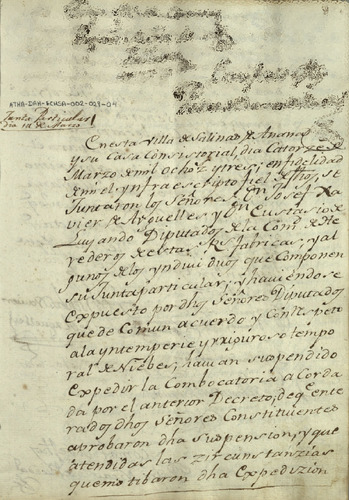 ATHA-DAH-ACHSA-002-021-04
Junta Particular
Dia 14 de Marzo
En esta Villa de Salinas de Añana
y su Casa Consistorial, dia Catorze de
Marzo de mil ochoz. y tres; en fidelidad
de mi el ynfraescripto fiel de fhos, se
Juntaron los Señores Dn Josef Xa
vier de Arguelles y Dn Eustasio de
Luyando Diputados de la Comd. de He
rederos de estas Rs. fabricas, y al
gunos de los yndividuos que Componen
su Junta particular; y haviendose
expuesto por dhos Señores Diputados
que de Comun acuerdo y Con respeto
a la yntemperie y riguroso tempo
ral de Niebes, havian suspendido
expedir la Combocatoria acorda
da por el anterior Decreto; de q.e ente
rados dhos Señores Constituientes
aprobaron dha suspension, y que
atendidas las zircunstanzias
que motibaron dha expedizion